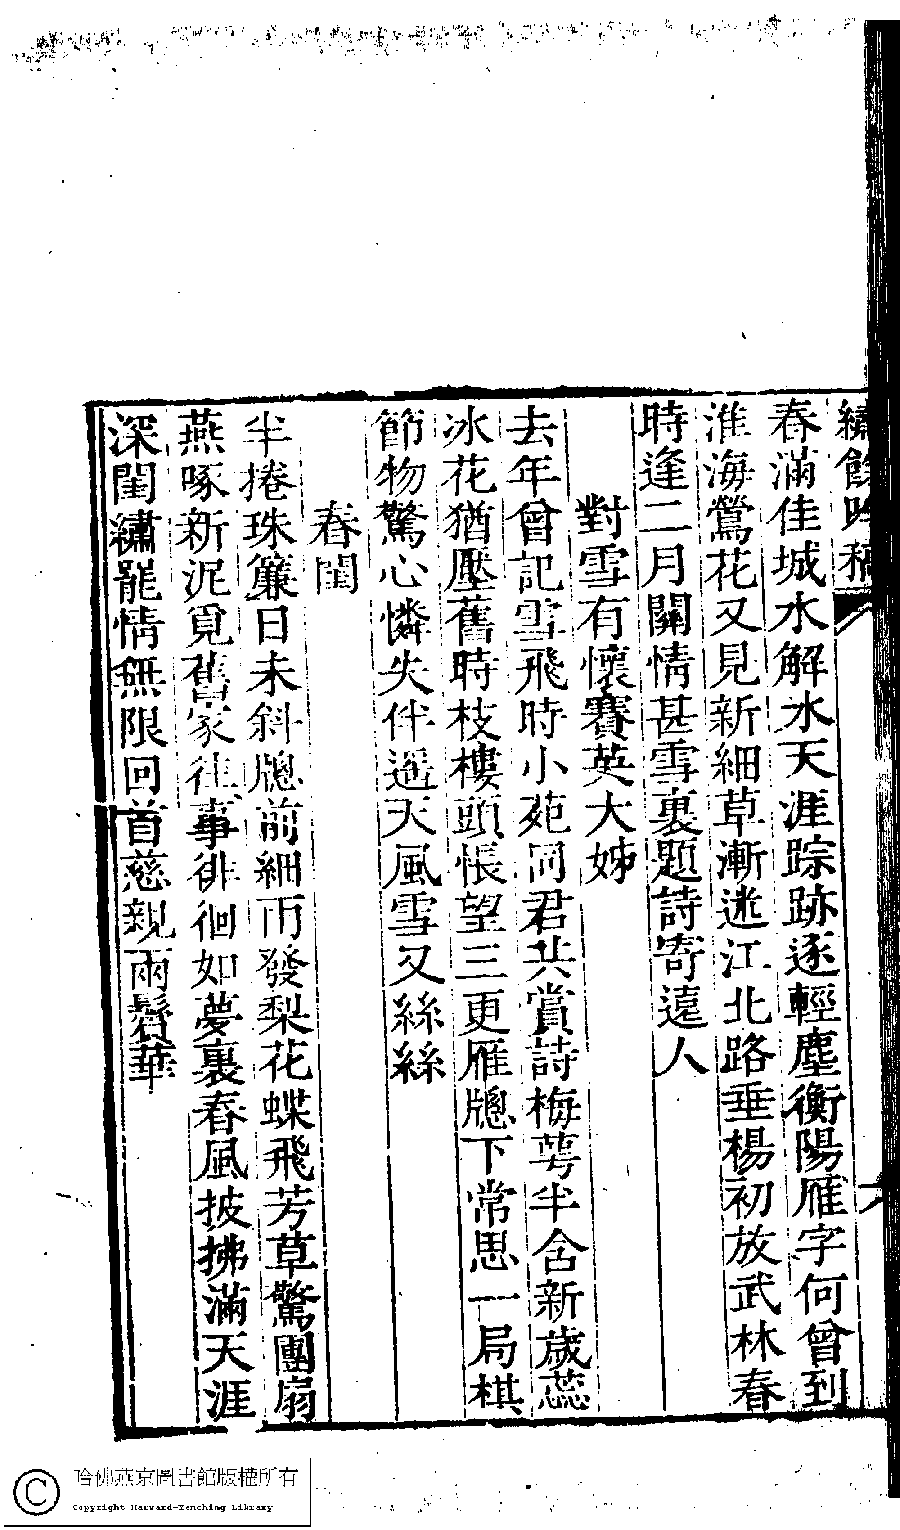 繡餘吟稿
春滿佳城水解冰天涯踪跡逐輕塵衡陽雁字何曾到
淮海鶯花又見新細草漸迷江北路垂楊初放武林春
時逢二月關情甚雪裏題詩寄遠人
對雪有懷賽英大姊
去年曾記雪飛時小苑同君共賞詩梅萼半含新歲蕊
冰花猶壓舊時枝樓頭悵望三更雁牕下常思一局棋
節物驚心憐失伴遥天風雪又絲絲
春閨
半捲珠簾日未斜牕前細雨發梨花蝶飛芳草驚團扇
燕啄新泥覓舊家往事徘徊如夢裏春風披拂滿天涯
深閨繡罷情無限回首慈親兩鬢華
哈佛燕京圖書館版權所有
Copyright Harvard-Yenching Library